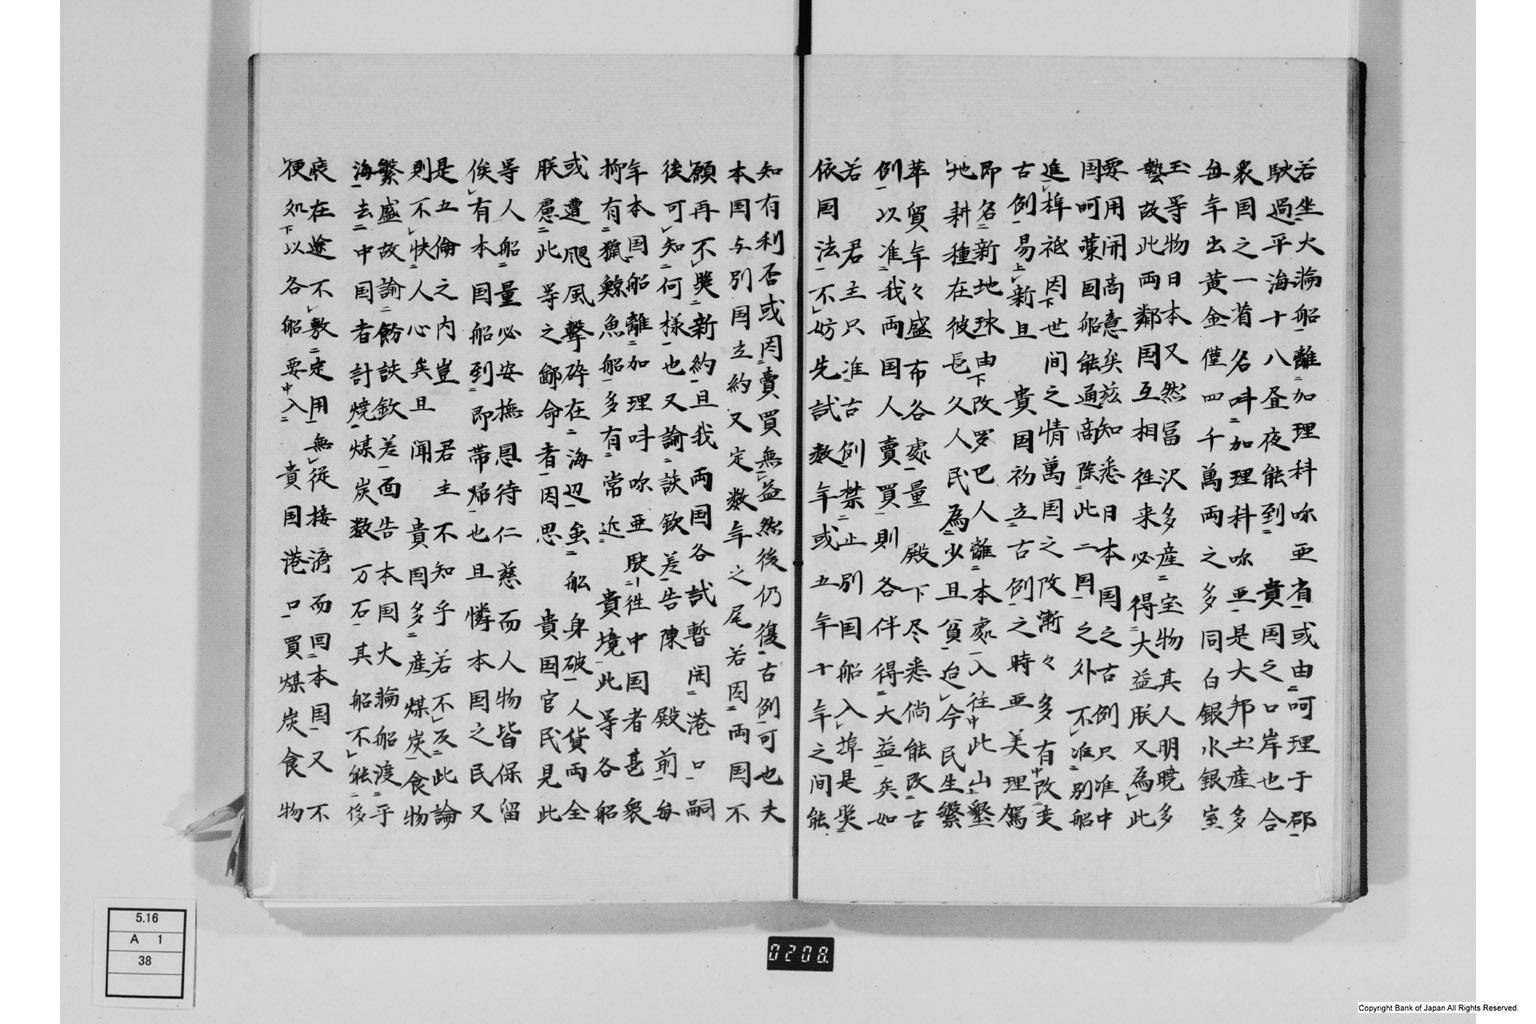 若坐火瀚船離加理科呩亜省或由呵理于郡
駛過平海十八昼夜能到 貴国之口岸也合
衆国之一省名呌加理科呩亜是大邦土産多
毎年出黄金僅四千萬両之多同白銀水銀室
玉等物日本又然冨沢多産宝物其人明曉多
藝故此両鄰国互相徃来必得大益朕又為此
要用開商意矣玆知悉日本国之古例只准中
国呵葉国船能通商除此二国之外不准别船
進埠祗因世間之情萬国之改漸々多有改変
古例易新且 貴国初立古例之時亜美理駕
即名新地球由改罗巴人離本處入往此山墾
地耕種在彼長久人民為少且貧迨今民生繁
華貿年々盛布各處量 殿下尽悉倘能改古
例以准我両国人賣買則各伴得大益矣如
若 君主只准古例禁止别国船入埠是奨
依国法不妨先試数年或五年十年之間能
知有利否或因賣買無益然後仍復古例可也夫
本国与別国立約又定数年之尾若因両国不
願再不奨新約且我両国各試暫開港口嗣
後可知何様也又諭誒欽差告陳 殿前毎
年本国船離加理呌呩亜駛徃中国者甚衆
抑有獵鯨魚船多有常近 貴境此等各船
或遭颶風擊碎在海辺虽船身破人貨両全
朕慮此等之鄃命者因思 貴国官民見此
等人船量必安撫恩待仁慈而人物皆保留
俟有本国船到即帯帰也且憐本国之民又
是五倫之内豈 君主不知乎若不及此論
則不快人心矣且聞 貴国多産煤炭食物
繁盛故諭飭誒欽差面告本国火瀚船渡乎
海去中国者計燒煤炭数万石其船不能侈
㡾在途不敷定用無従接済而回本国又不
便如以各船要入 貴国港口買煤炭食物
5.16
A 1
38
0208.
Copyright Bank of Japan All Rights Reserved.